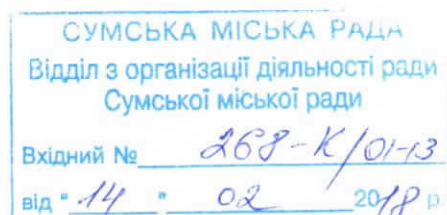 СУМСЬКА МІСЬКА РАДА
Відділ з організації діяльності ради
Сумської міської ради
Вхідний № 268-К/01-13
від "14" 02 2018 р